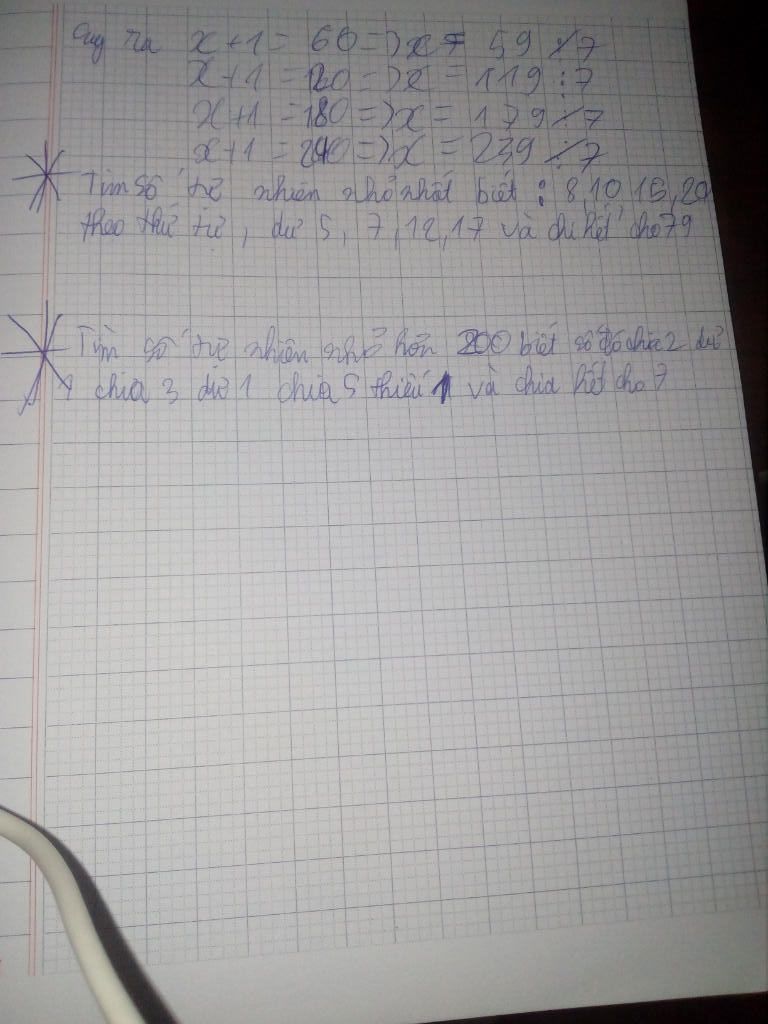 x + 1 = 60 => x = 59 ⋮̸ 7
x + 1 = 120 => x = 119 ⋮ 7
x + 1 = 180 => x = 179 ⋮̸ 7
x + 1 = 240 => x = 239 ⋮̸ 7
Tìm số tự nhiên nhỏ nhất biết : 8, 10, 15, 20
theo thứ tự, dư 5, 7, 12, 17 và chi hết cho 79
Tìm số tự nhiên nhỏ hơn 200 biết số đó chia 2 dư
1 chia 3 dư 1 chia 5 thiếu 1 và chia hết cho 7